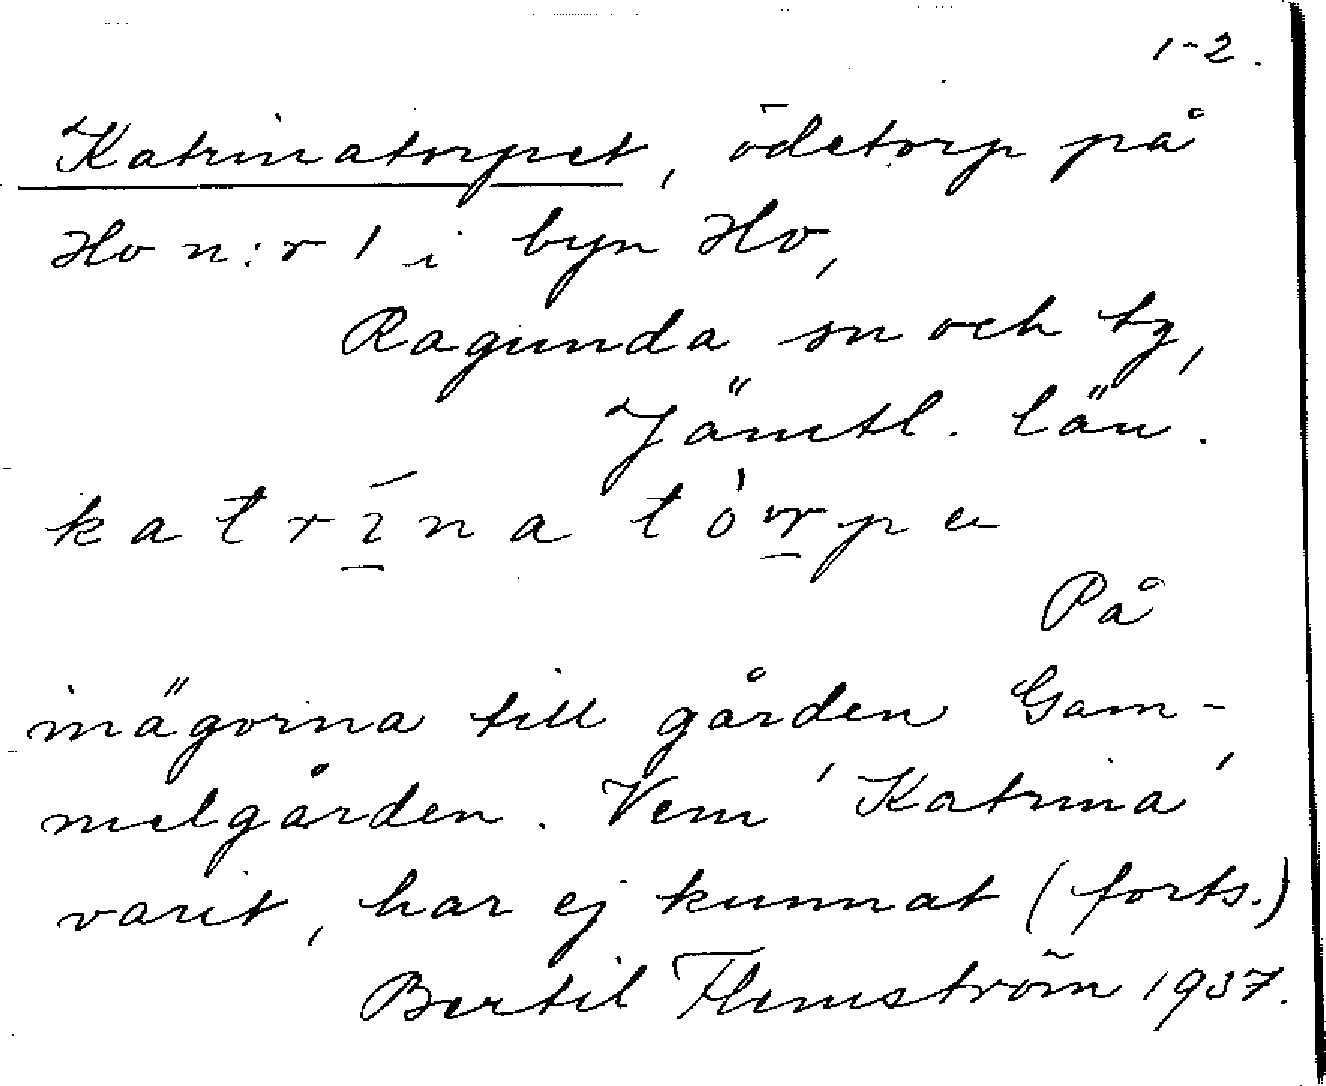 1-2.
Katrinatorpet, ödetorp på
Hov n:r 1 i byn Hov,
Ragunda sn och tg,
Jämtl. län.
katrína tórpe
På
inägorna till gården Gam-
melgården. Vem 'Katrina'
varit, har ej kunnat (forts.)
Bertil Flemström 1937.